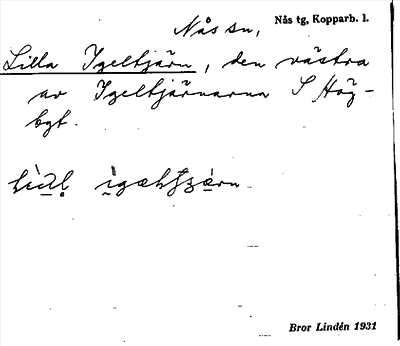 Nås sn, Nås tg, Kopparb. l.
Lilla Igeltjärn, den västra
av Igeltjärnarna S Hög-
bgt.
Bror Lindén 1931